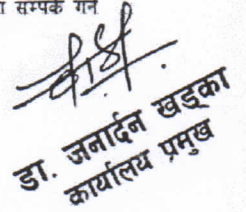 सम्पर्क गर्न
डा. जनार्दन खड्का
कार्यालय प्रमुख